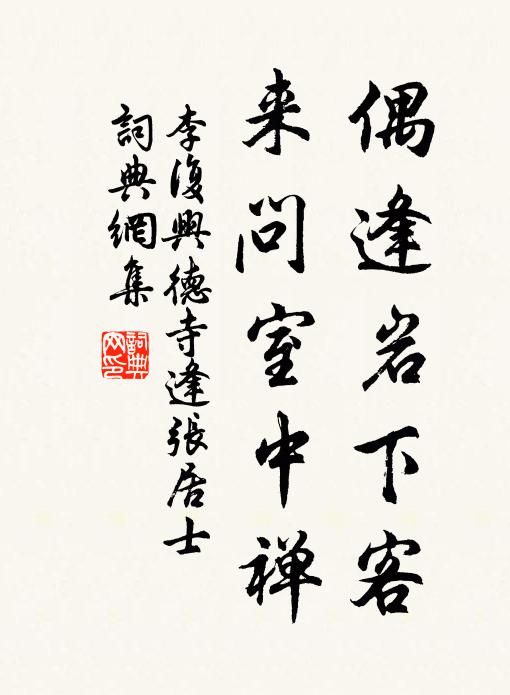 偶逢岩下客
来问室中禅
李復興德寺逢張居士
詞典網集
詞典网印